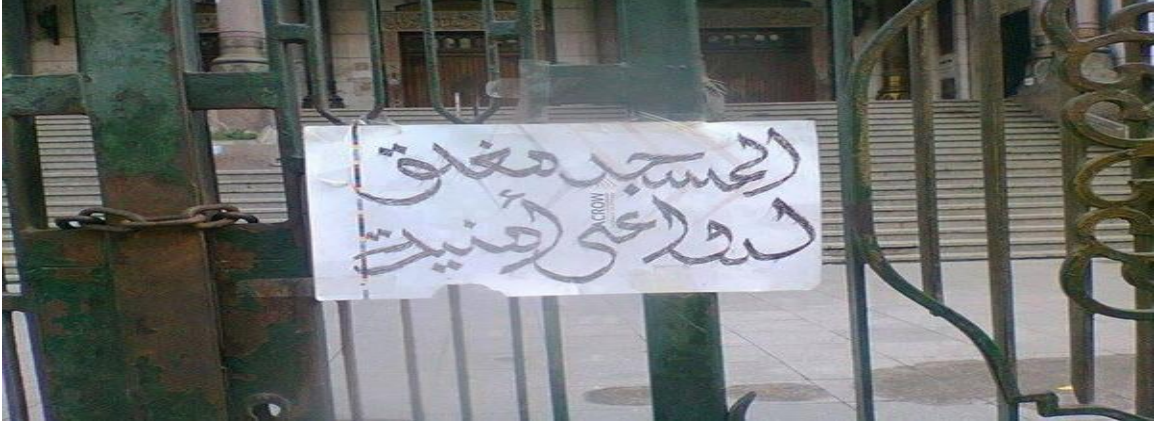 المسجد مغلق
لدواعى أمنية
ACROW